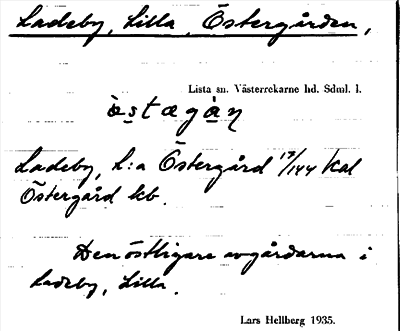 Ladeby, Lilla, Östergården,
Lista sn. Västerrekarne hd. Sdml. l.
òstægàn
Ladeby, L:a Östergård 17/144 Kal
Östergård kb.
Den östligare av gårdarna i
Ladeby, Lilla.
Lars Hellberg 1935.